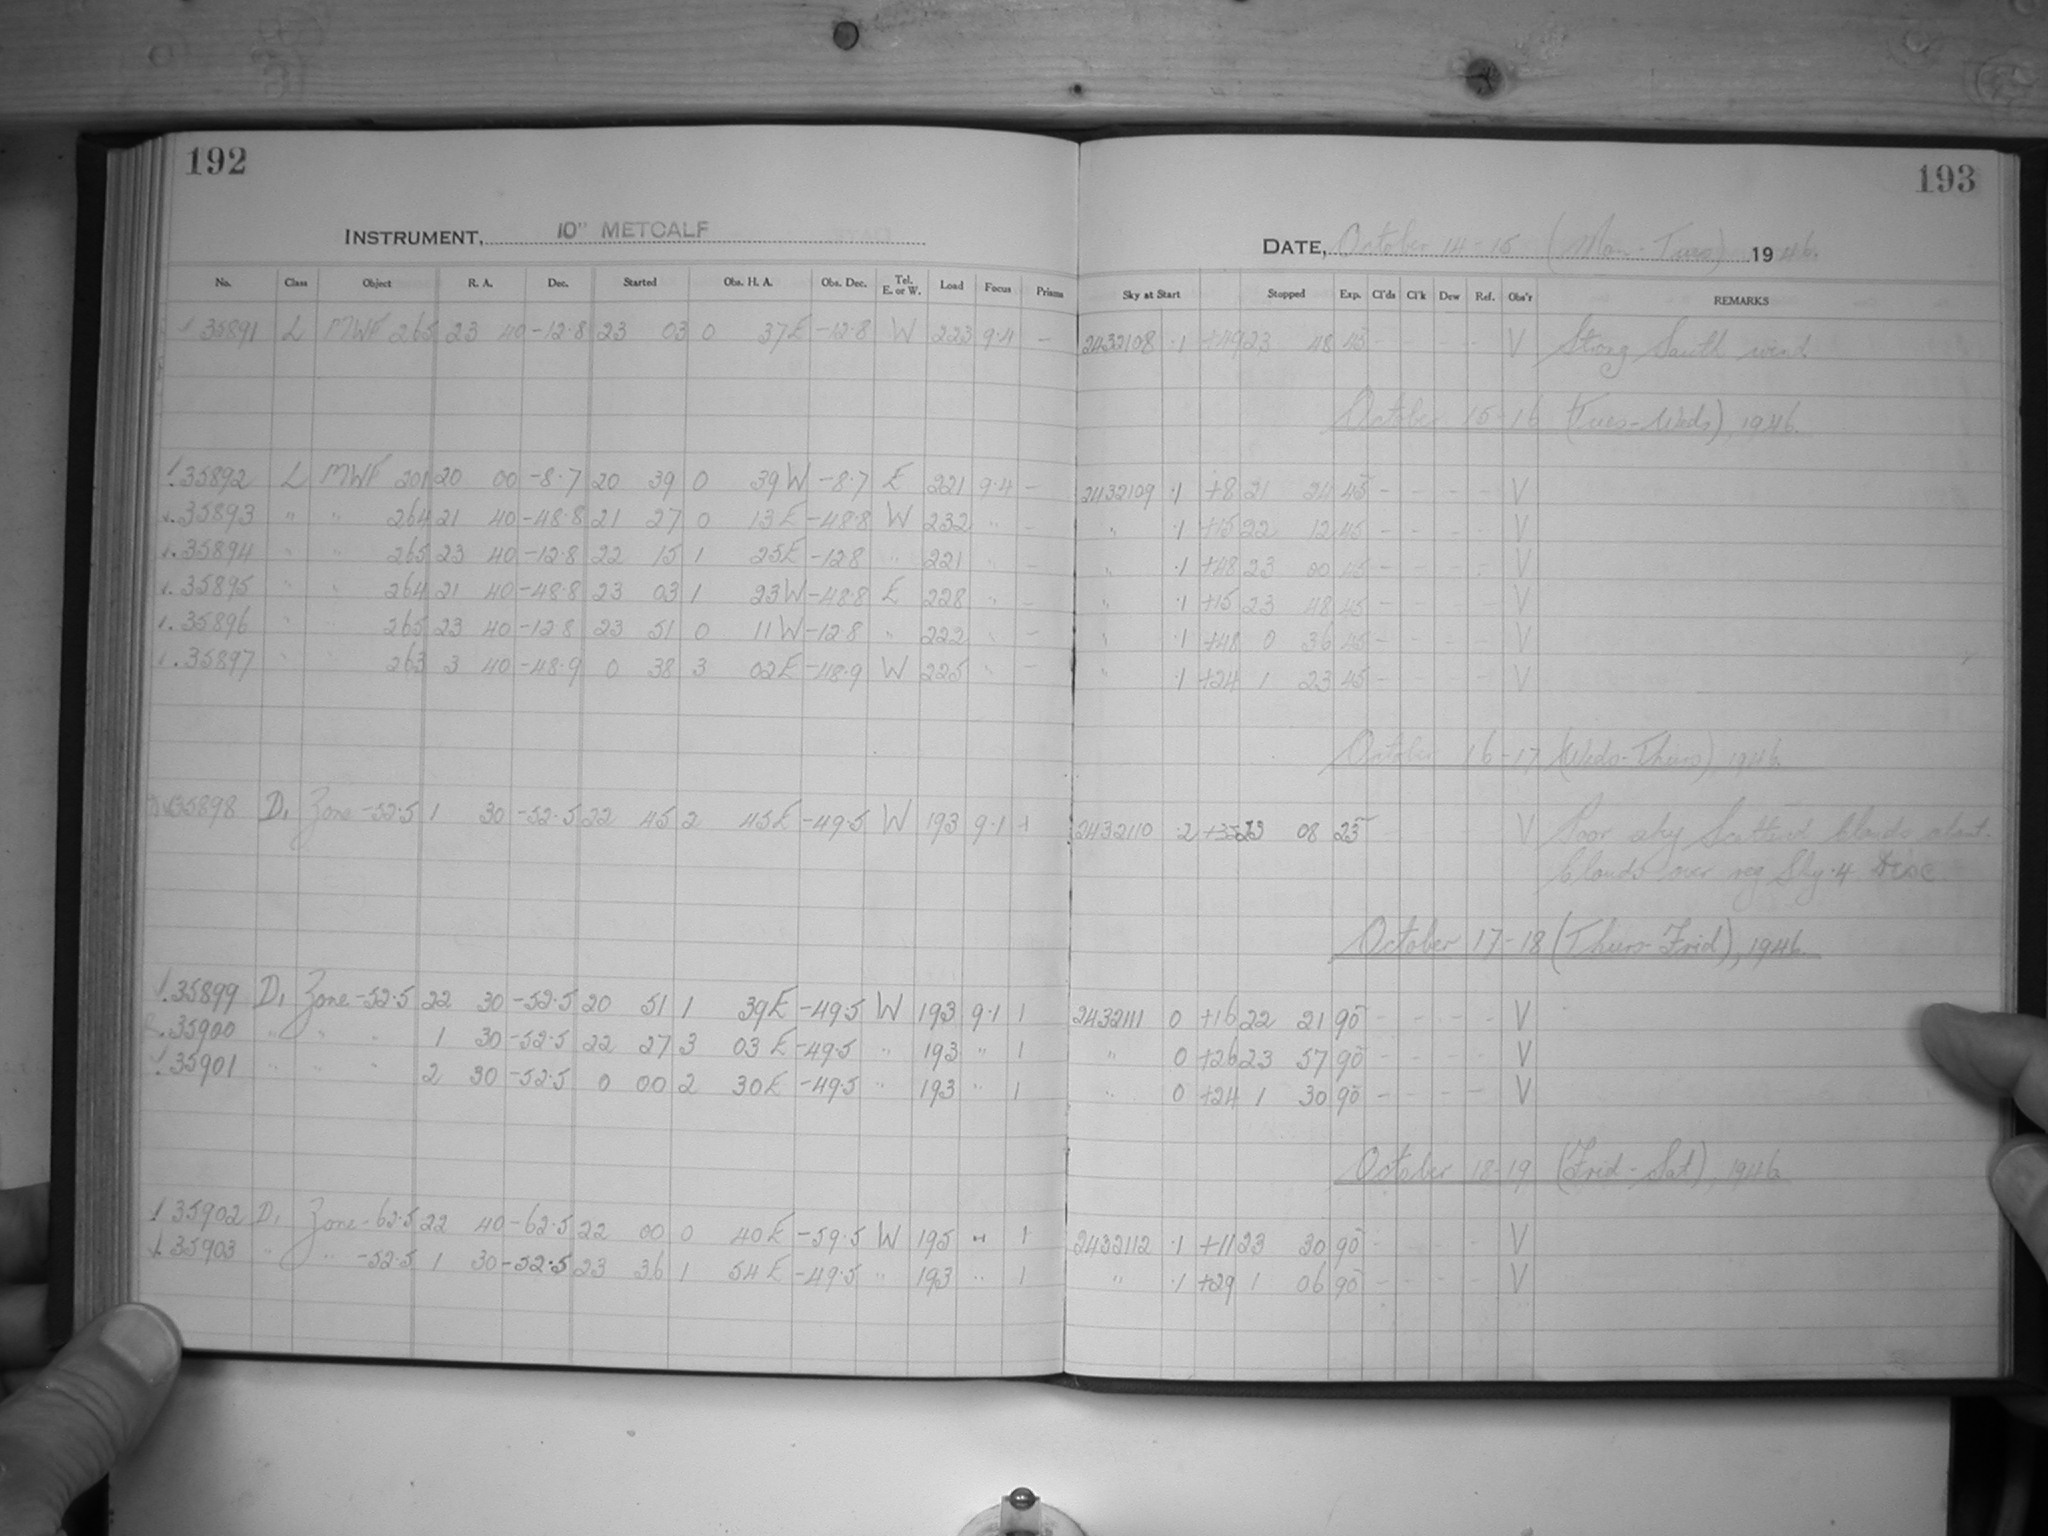 192
INSTRUMENT, 10" METCALF
No. Class Object R. A. Dec. Started Obs. H. A. Obs. Dec. Tel. E. or W. Load Focus Prisms
35891 L MWF 265 23 40 -12.8 23 03 0 37E -12.8 W 223 9.4 -
35892 L MWF 201 20 00 -8.7 20 39 0 39W -8.7 E 221 9.4 -
35893 " " 264 21 40 -48.8 21 27 0 13E -48.8 W 232 " -
35894 " " 265 23 40 -12.8 22 15 1 25E -12.8 " 221 " -
35895 " " 264 21 40 -48.8 23 03 1 23W -48.8 E 228 " -
35896 " " 265 23 40 -12.8 23 51 0 11W -12.8 " 222 " -
35897 " " 263 3 40 -48.9 0 38 3 02E -48.9 W 225 " -
35898 D, Zone -52.5 1 30 -52.5 22 45 2 45E -49.5 W 193 9.1 1
35899 D, Zone -52.5 22 30 -52.5 20 51 1 39E -49.5 W 193 9.1 1
35900 " " " 1 30 -52.5 22 27 3 03E -49.5 " 193 " 1
35901 " " " 2 30 -52.5 0 00 2 30E -49.5 " 193 " 1
35902 D, Zone -62.5 22 40 -62.5 22 00 0 40E -59.5 W 195 " 1
35903 " " -52.5 1 30 -52.5 23 36 1 54E -49.5 " 193 " 1
193
DATE, October 14-15 (Mon-Tues) 1946.
Sky at Start Stopped Exp. Cl'ds Cl'k Dew Ref. Obs'r REMARKS
2432108 .1 +49 23 48 45 - - - - V Strong South wind.
October 15-16 (Tues-Weds), 1946.
2432109 .1 +8 21 24 45 - - - - V
" .1 +15 22 12 45 - - - - V
" .1 +48 23 00 45 - - - - V
" .1 +15 23 48 45 - - - - V
" .1 +48 0 36 45 - - - - V
" .1 +24 1 23 45 - - - - V
October 16-17 (Weds-Thurs), 1946.
2432110 .2 23 08 23 - - - V Poor sky Scattered clouds about.
Clouds over reg Sky .4 Disc
October 17-18 (Thurs-Frid), 1946.
2432111 0 +16 22 21 90 - - - - V
" 0 +26 23 57 90 - - - - V
" 0 +24 1 30 90 - - - - V
October 18-19 (Frid-Sat), 1946.
2432112 .1 +11 23 30 90 - - - - V
" .1 +29 1 06 90 - - - - V